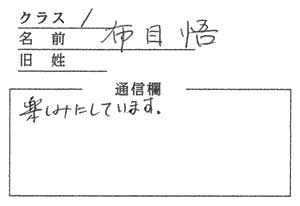 クラス 1
名前 布目悟
旧姓
通信欄
楽しみにしています.